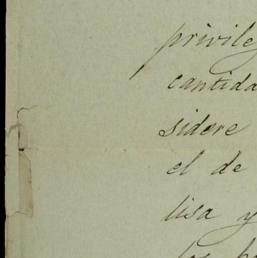 privile
cantida
sidere
el de
lisa y
los